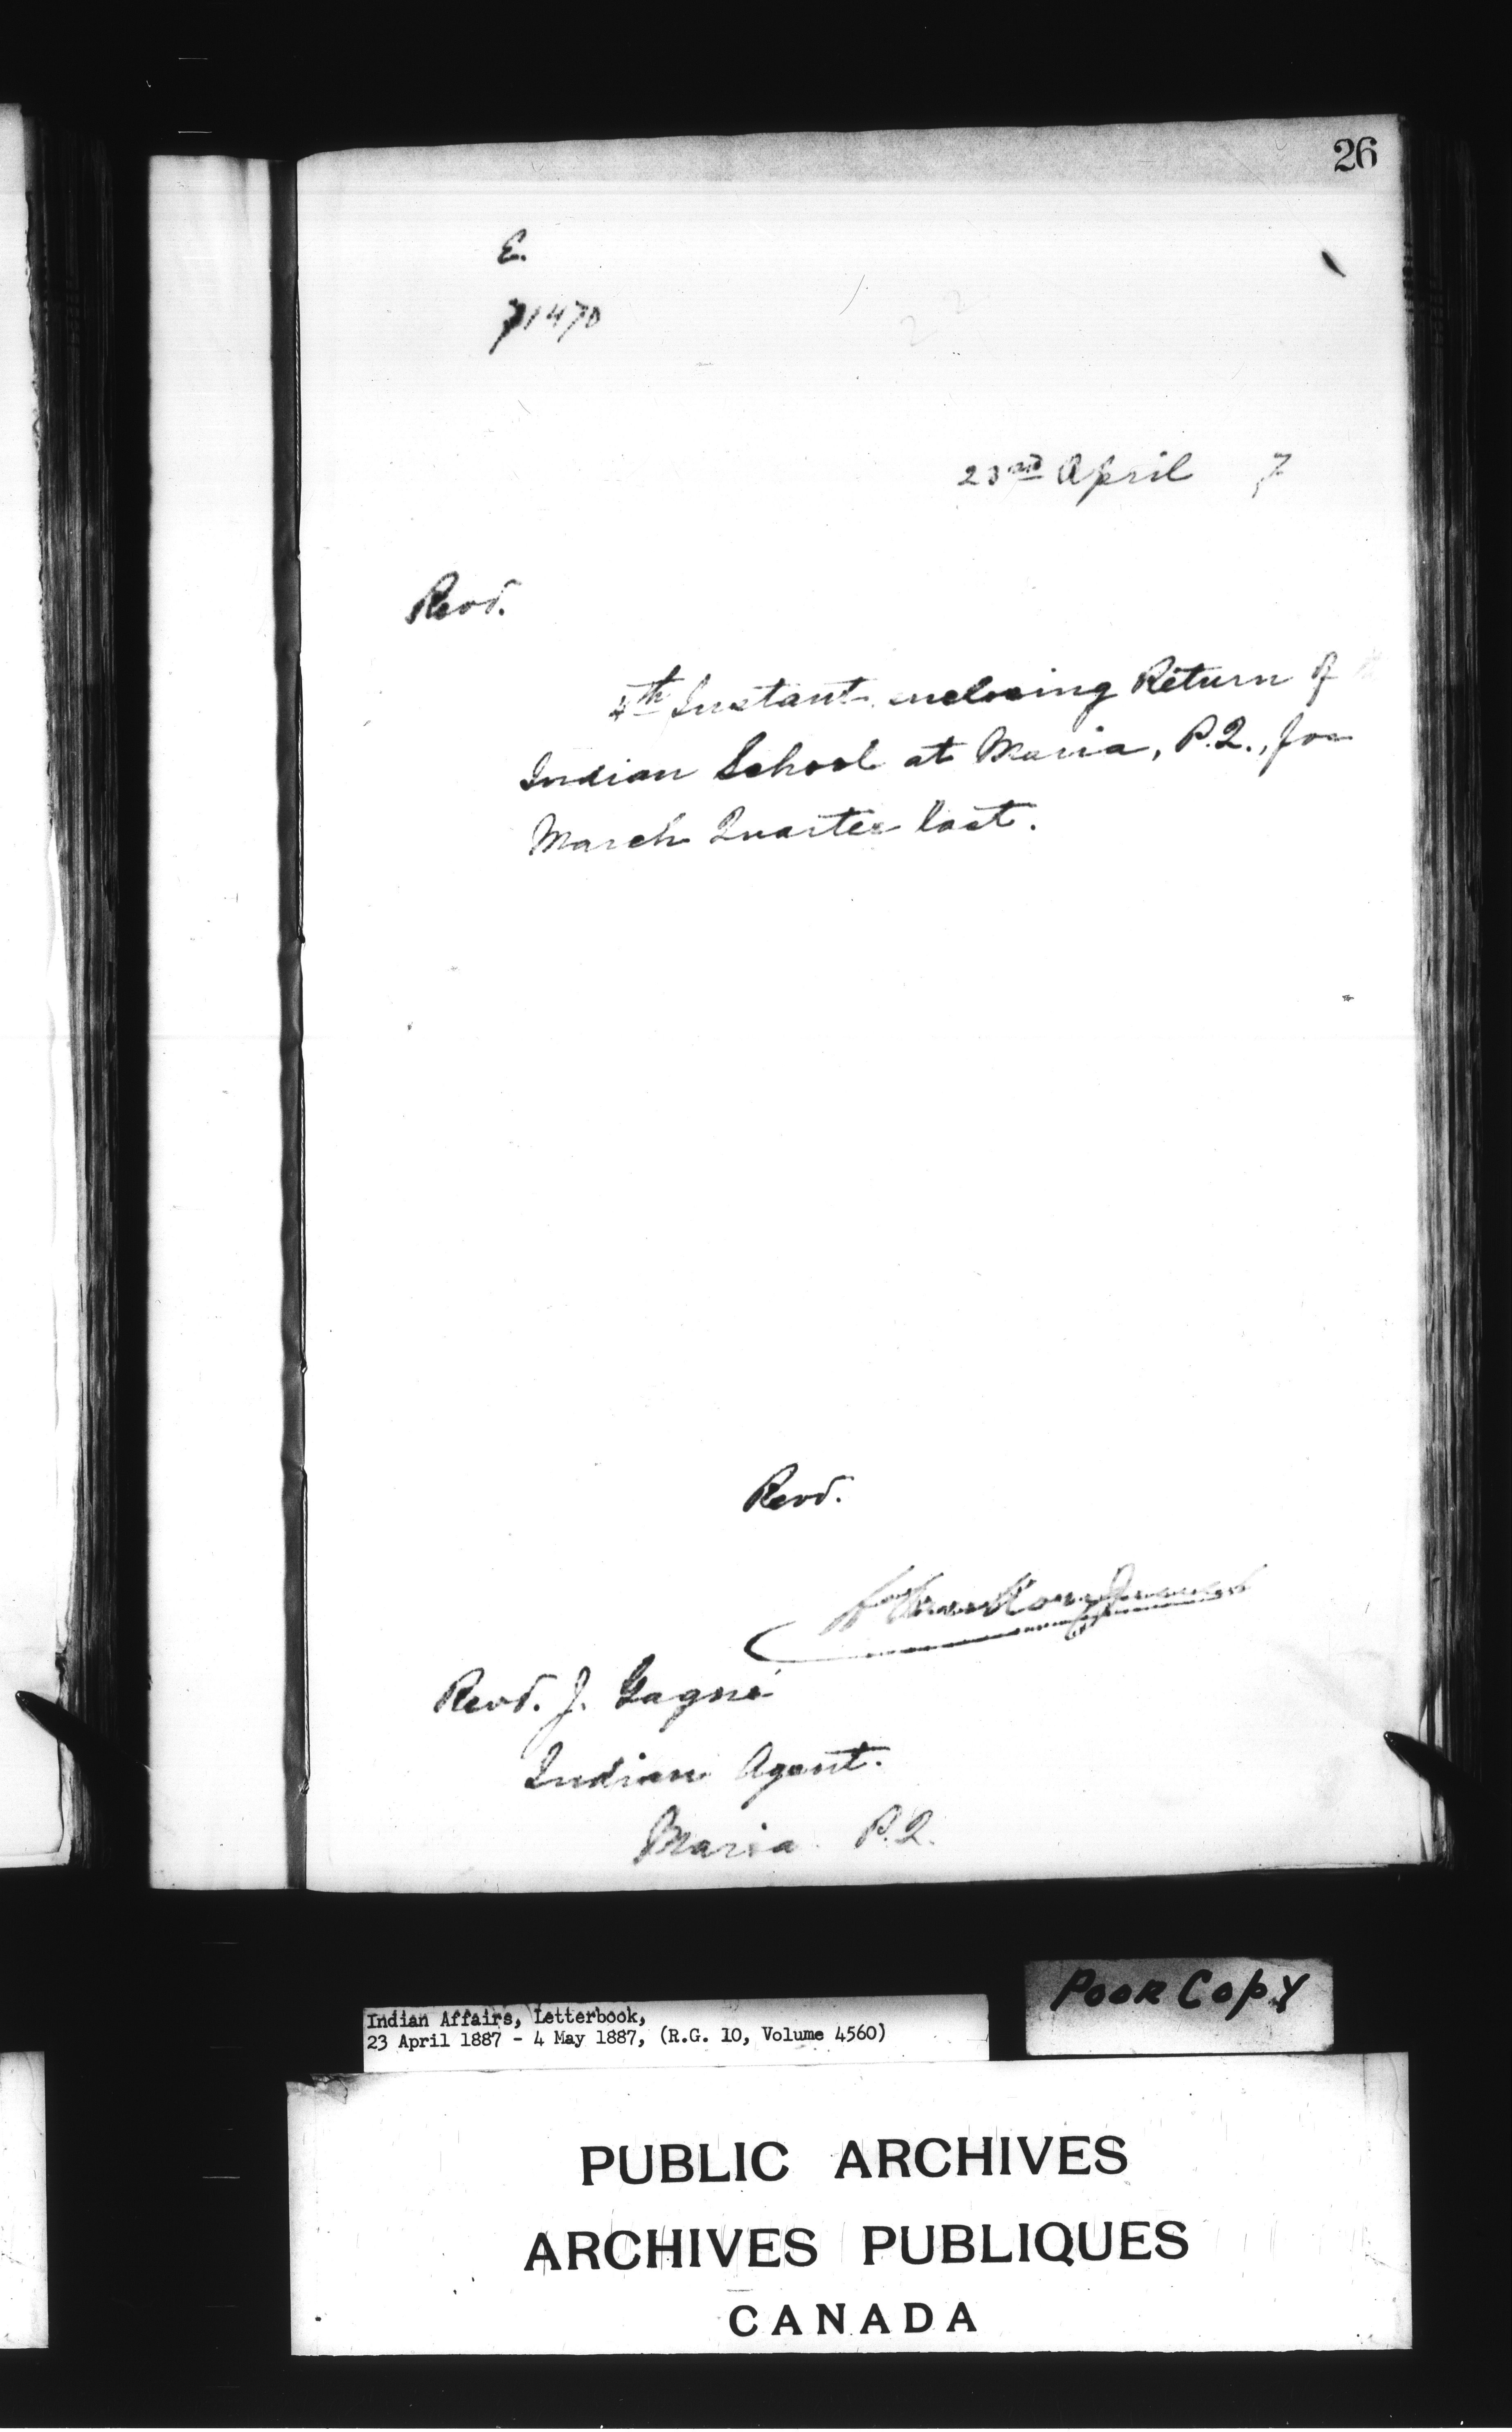 26
E.
71470
23rd April 7
Revd.
4th Instant enclosing Return of
Indian School at Maria, P.Q., for
March Quarter last.
Revd.
Revd. J. Gagné
Indian Agent.
Maria P.Q.
POOR COPY
Indian Affairs, Letterbook,
23 April 1887 - 4 May 1887, (R.G. 10, Volume 4560)
PUBLIC ARCHIVES
ARCHIVES PUBLIQUES
CANADA